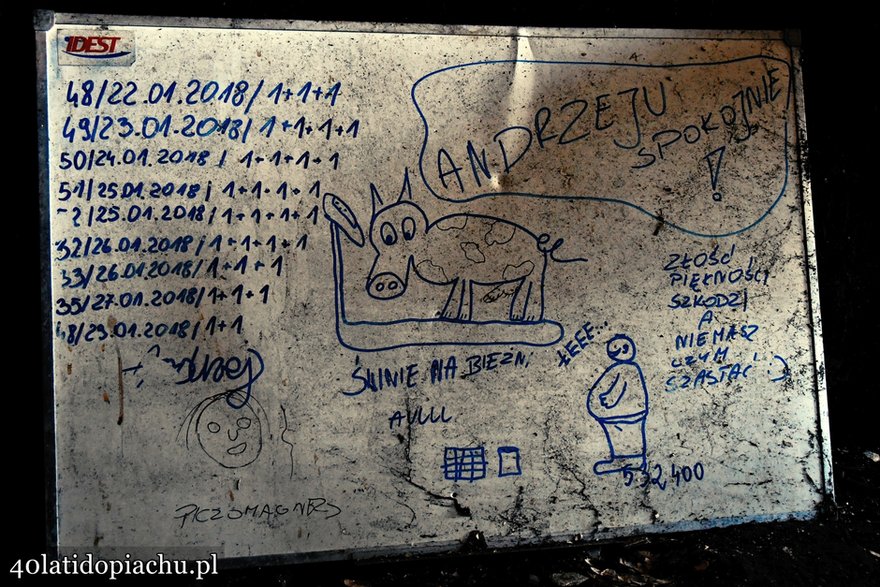 IDEST
48/22.01.2018/1+1+1
49/23.01.2018/1+1+1+1
50/24.01.2018/1+1+1+1
51/25.01.2018/1+1+1+1
2/25.01.2018/1+1+1+1
32/26.01.2018/1+1+1+1
33/26.01.2018/1+1+1
35/27.01.2018/1+1+1
48/29.01.2018/1+1
ANDRZEJU
SPOKOJNIE
!
ZŁOŚĆ
PIĘKNOŚCI
SZKODZI
A
NIE MASZ
CZYM
SZASTAĆ! :)
ŚWINIE NA BIEŻN.
ŁEEE...
AULLL
532,400
40latidopiachu.pl